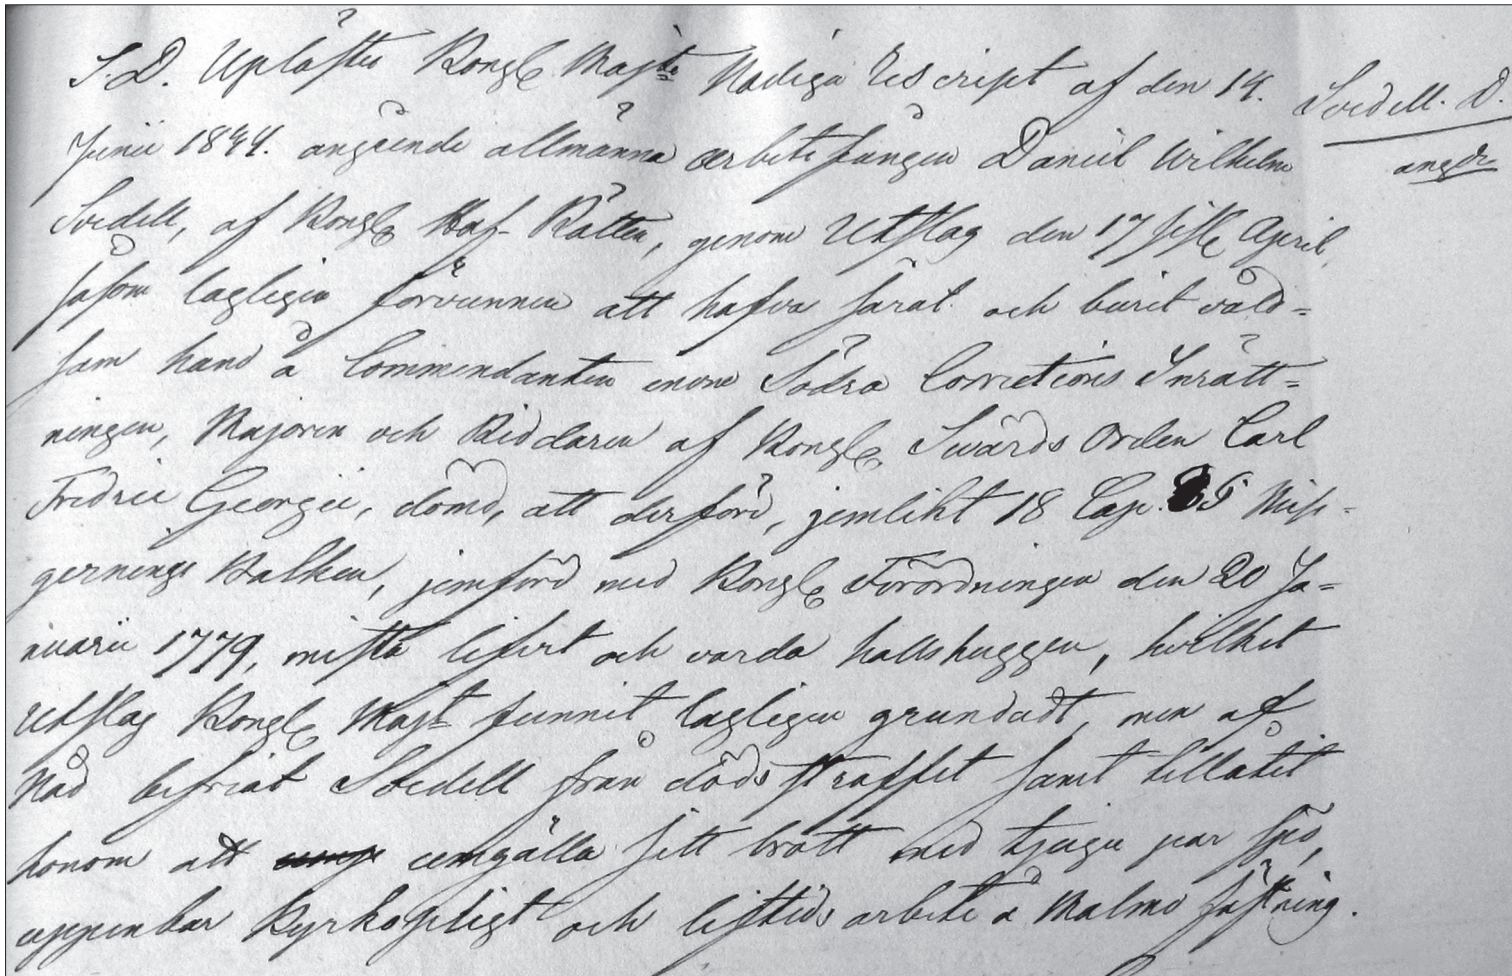 S. D. Uplästes Kongl. Majts Nådiga Rescript af den 14.
Junii 1844. angående allmänna arbetsfången Daniel Wilhelm
Svedell, af Kongl. Hof-Rätten, genom Utslag den 17 sistl. April,
såsom lagligen förvunnen att hafva sårat och burit våld=
sam hand å Commendanten inom Södra Corrections Inrätt=
ningen, Majoren och Riddaren af Kongl. Swärds Orden Carl
Fredric Georgii, dömd, att derföre, jemlikt 18 Cap. 5 § Miss=
gernings Balken, jemförd med Kongl. Förordningen den 20 Ja=
nuarii 1779, mista lifvet och varda halshuggen, hvilket
Utslag Kongl. Majt funnit lagligen grundadt, men af
Nåd befriat Svedell från dödsstraffet samt tillåtit
honom att umgälla sitt brott med tjugu par spö,
uppenbar Kyrkopligt och lifstids arbete å Malmö fästning.
Svedell. D.
angde